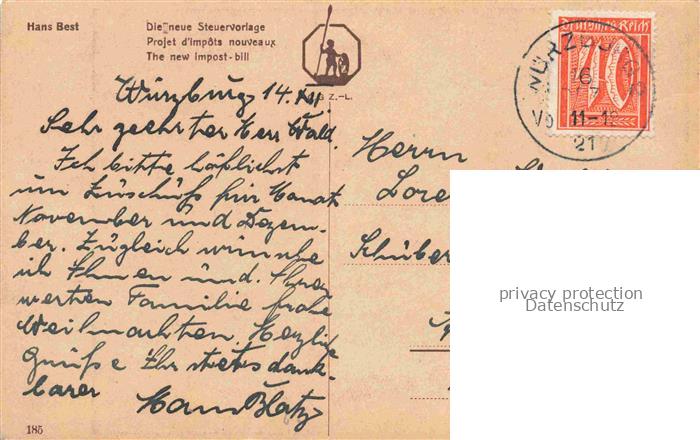 Hans Best
Die neue Steuervorlage
Projet d'impôts nouveaux
The new impost-bill
Z.-L.
Deutsches Reich
40
11-1
21
Würzburg 14. XII.
Sehr geehrter Herr Wald.
Ich bitte höflichst
um Zuschuß für Monat
November und Dezem-
ber. Zugleich wünsche
ich Ihnen und Ihrer
werten Familie frohe
Weihnachten. Herzliche
Grüße Ihr stets dank-
barer
Hans Blatz
Herrn
Schuber
privacy protection
Datenschutz
185